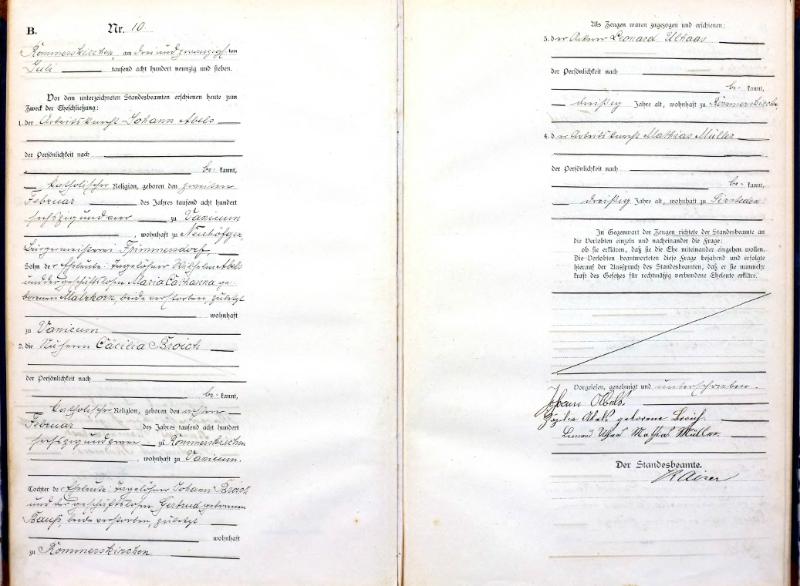 B. Nr. 10
Rommerskirchen, am drei und zwanzigsten
Juli tausend acht hundert neunzig und sieben.
Vor dem unterzeichneten Standesbeamten erschienen heute zum
Zweck der Eheschließung:
1. der Arbeitsknecht Johann Abels
der Persönlichkeit nach
be- kannt,
katholischer Religion, geboren den zweiten
Februar des Jahres tausend acht hundert
sechszig und vier zu Vanicum
, wohnhaft zu
Bürgermeisterei Frimmersdorf
Sohn der Eheleute: Tagelöhner Wilhelm Abels
und der geschäftslosen Maria Catharina ge-
borenen Malzkorn, beide verstorben, zuletzt
wohnhaft
zu Vanicum
2. die Näherin Cäcilia Broich
der Persönlichkeit nach
be- kannt,
katholischer Religion, geboren den
Februar des Jahres tausend acht hundert
sechszig und zu Rommerskirchen
, wohnhaft zu Vanicum.
Tochter der Eheleute: Tagelöhner Johann Broich
und der geschäftslosen Gertrud geborenen
beide verstorben, zuletzt
wohnhaft
zu Rommerskirchen
Als Zeugen waren zugezogen und erschienen:
3. der Ackerer Leonard
der Persönlichkeit nach
be- kannt,
dreißig Jahre alt, wohnhaft zu Rommerskirchen
4. der Arbeitsknecht Mathias Müller
der Persönlichkeit nach
be- kannt,
dreißig Jahre alt, wohnhaft zu
In Gegenwart der Zeugen richtete der Standesbeamte an
die Verlobten einzeln und nacheinander die Frage:
ob sie erklären, daß sie die Ehe miteinander eingehen wollen.
Die Verlobten beantworteten diese Frage bejahend und erfolgte
hierauf der Ausspruch des Standesbeamten, daß er sie nunmehr
kraft des Gesetzes für rechtmäßig verbundene Eheleute erkläre.
Vorgelesen, genehmigt und unterschrieben.
Johann Abels
Abels geborene Broich
Müller.
Der Standesbeamte.